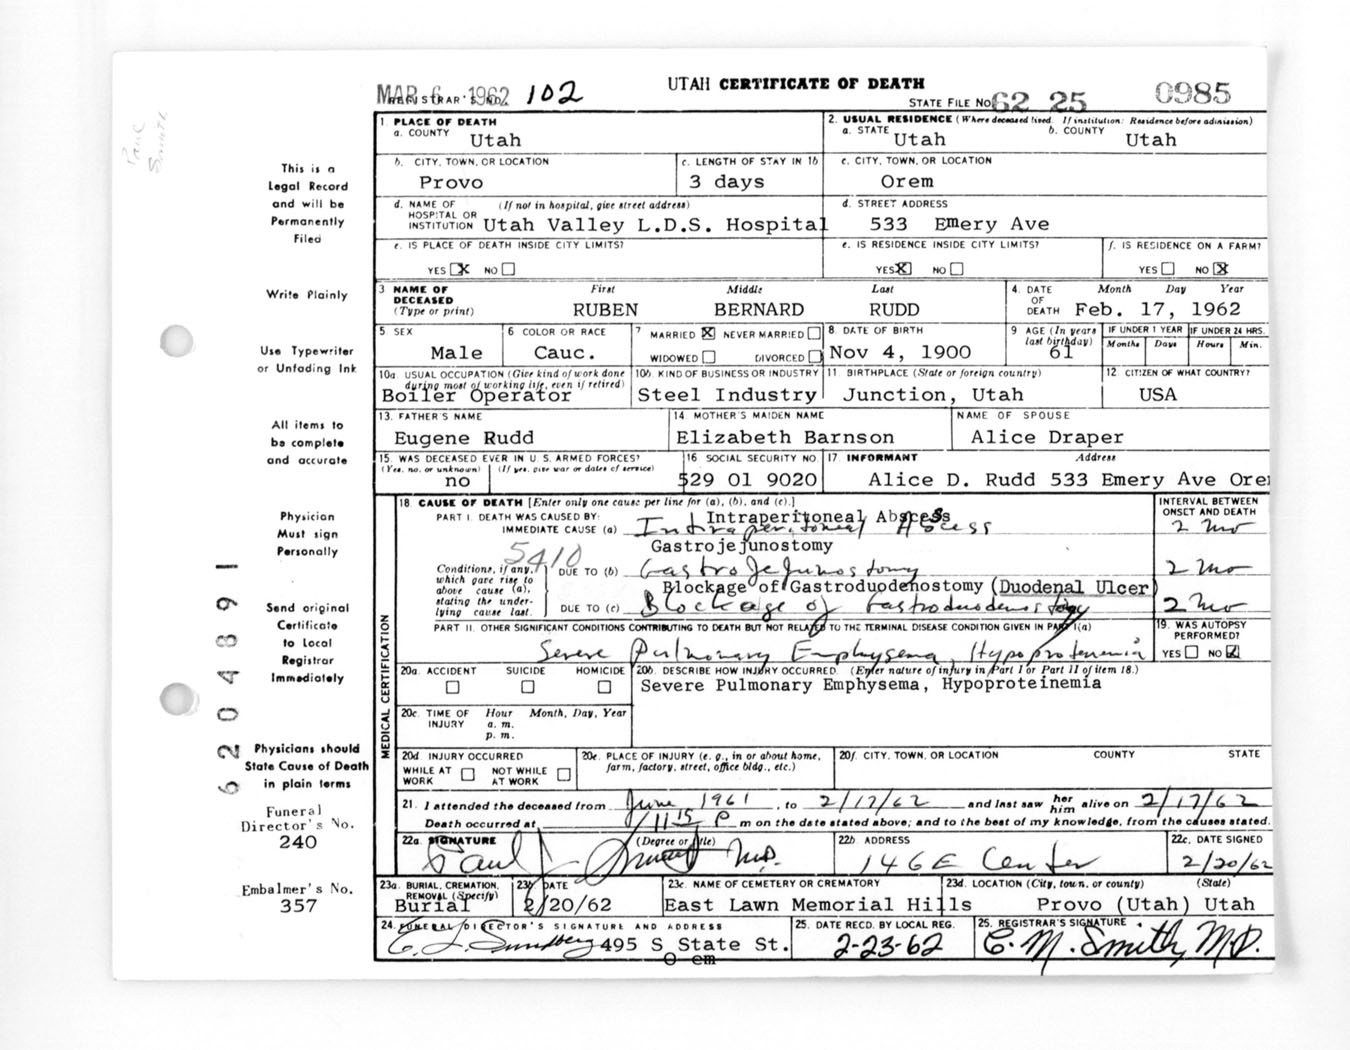 Paul
Smith
MAR 6 1962 102
REGISTRAR'S NO.
UTAH CERTIFICATE OF DEATH
STATE FILE NO. 62 25 0985
This is a
Legal Record
and will be
Permanently
Filed
Write Plainly
Use Typewriter
or Unfading Ink
All items to
be complete
and accurate
Physician
Must sign
Personally
Send original
Certificate
to Local
Registrar
Immediately
Physicians should
State Cause of Death
in plain terms
Funeral
Director's No.
240
Embalmer's No.
357
6204891
1. PLACE OF DEATH
a. COUNTY Utah
2. USUAL RESIDENCE (Where deceased lived. If institution: Residence before admission)
a. STATE Utah b. COUNTY Utah
b. CITY, TOWN, OR LOCATION
Provo
c. LENGTH OF STAY IN 1b
3 days
c. CITY, TOWN, OR LOCATION
Orem
d. NAME OF (If not in hospital, give street address)
HOSPITAL OR
INSTITUTION Utah Valley L.D.S. Hospital
d. STREET ADDRESS
533 Emery Ave
e. IS PLACE OF DEATH INSIDE CITY LIMITS?
YES X NO
e. IS RESIDENCE INSIDE CITY LIMITS?
YES X NO
f. IS RESIDENCE ON A FARM?
YES NO X
3. NAME OF DECEASED (Type or print)
First Middle Last
RUBEN BERNARD RUDD
4. DATE OF DEATH Month Day Year
Feb. 17, 1962
5. SEX
Male
6 COLOR OR RACE
Cauc.
7 MARRIED X NEVER MARRIED
WIDOWED DIVORCED
8. DATE OF BIRTH
Nov 4, 1900
9 AGE (In years last birthday)
61
IF UNDER 1 YEAR
Months Days
IF UNDER 24 HRS.
Hours Min.
10a. USUAL OCCUPATION (Give kind of work done
during most of working life, even if retired)
Boiler Operator
10b. KIND OF BUSINESS OR INDUSTRY
Steel Industry
11 BIRTHPLACE (State or foreign country)
Junction, Utah
12. CITIZEN OF WHAT COUNTRY?
USA
13. FATHER'S NAME
Eugene Rudd
14 MOTHER'S MAIDEN NAME
Elizabeth Barnson
NAME OF SPOUSE
Alice Draper
15. WAS DECEASED EVER IN U. S. ARMED FORCES?
(Yes, no, or unknown) (If yes, give war or dates of service)
no
16 SOCIAL SECURITY NO
529 01 9020
17 INFORMANT Address
Alice D. Rudd 533 Emery Ave Orem
MEDICAL CERTIFICATION
18. CAUSE OF DEATH [Enter only one cause per line for (a), (b), and (c).]
INTERVAL BETWEEN
ONSET AND DEATH
PART I. DEATH WAS CAUSED BY:
Intraperitoneal Abscess
IMMEDIATE CAUSE (a) Intraperitoneal Abscess 2 mo
5410
Gastrojejunostomy
Conditions, if any,
which gave rise to
above cause (a),
stating the under-
lying cause last.
DUE TO (b) Gastrojejunostomy 2 mo
Blockage of Gastroduodenostomy (Duodenal Ulcer)
DUE TO (c) Blockage of Gastroduodenostomy 2 mo
PART II. OTHER SIGNIFICANT CONDITIONS CONTRIBUTING TO DEATH BUT NOT RELATED TO THE TERMINAL DISEASE CONDITION GIVEN IN PART I(a)
Severe Pulmonary Emphysema, Hypoproteinemia
19. WAS AUTOPSY
PERFORMED?
YES NO X
20a. ACCIDENT SUICIDE HOMICIDE
20b. DESCRIBE HOW INJURY OCCURRED. (Enter nature of injury in Part I or Part II of item 18.)
Severe Pulmonary Emphysema, Hypoproteinemia
20c. TIME OF INJURY
Hour Month, Day, Year
a. m.
p. m.
20d INJURY OCCURRED
WHILE AT WORK NOT WHILE AT WORK
20e. PLACE OF INJURY (e. g., in or about home,
farm, factory, street, office bldg., etc.)
20f. CITY, TOWN, OR LOCATION COUNTY STATE
21. I attended the deceased from June 1961, to 2/17/62 and last saw her him alive on 2/17/62
Death occurred at 11 15 P m on the date stated above; and to the best of my knowledge, from the causes stated.
22a. SIGNATURE (Degree or title)
Paul J. Smith M.D.
22b. ADDRESS
146 E Center
22c. DATE SIGNED
2/20/62
23a. BURIAL, CREMATION,
REMOVAL (Specify)
Burial
23b DATE
2/20/62
23c. NAME OF CEMETERY OR CREMATORY
East Lawn Memorial Hills
23d. LOCATION (City, town, or county) (State)
Provo (Utah) Utah
24. FUNERAL DIRECTOR'S SIGNATURE AND ADDRESS
C. L. Sundberg 495 S State St.
O em
25. DATE RECD. BY LOCAL REG.
2-23-62
25. REGISTRAR'S SIGNATURE
C. M. Smith, M.D.